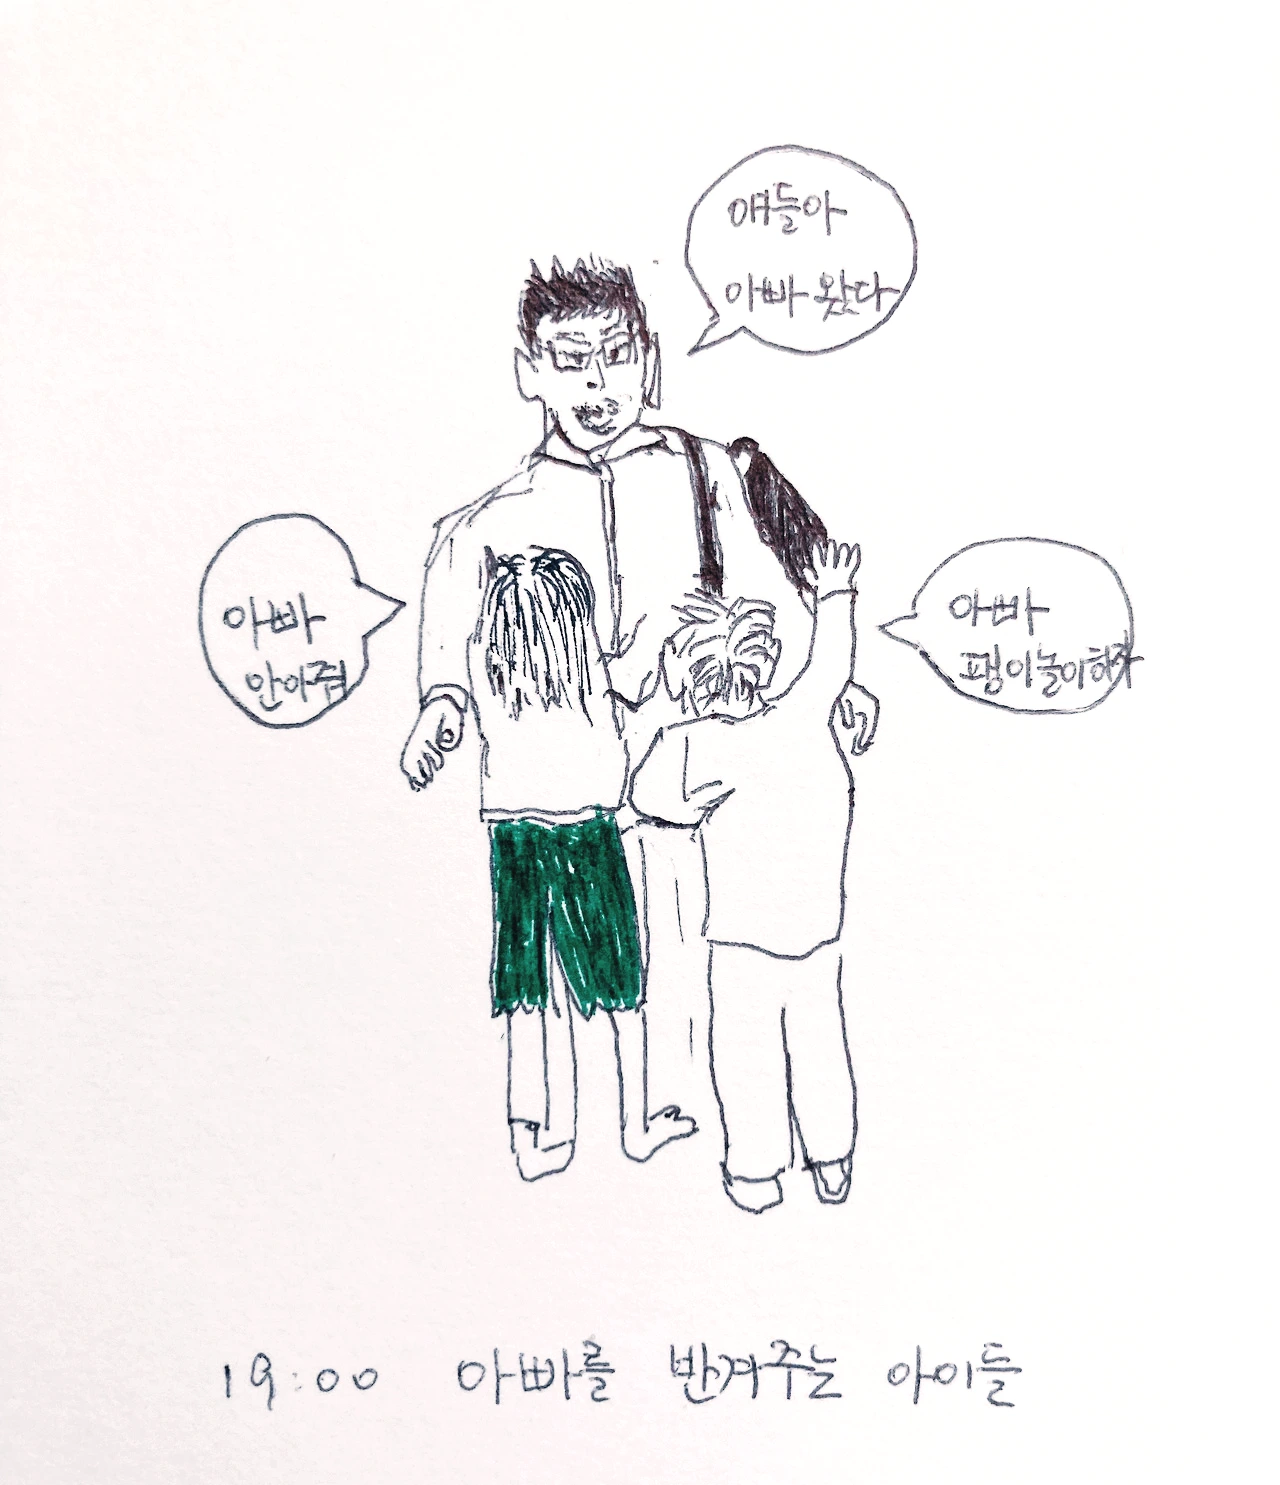 얘들아
아빠 왔다
아빠
안아줘
아빠
팽이놀이하자
19:00 아빠를 반겨주는 아이들